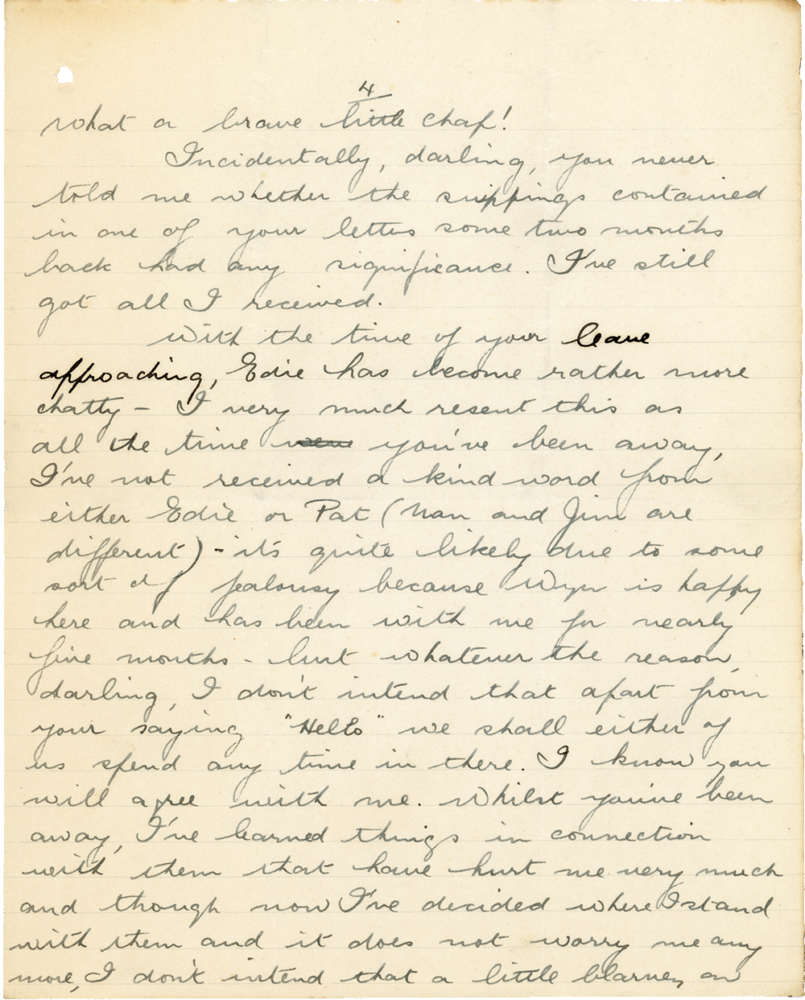 4
what a brave little chap!
Incidentally, darling, you never
told me whether the snippings contained
in one of your letters some two months
back had any significance. I've still
got all I received.
With the time of your leave
approaching, Edie has become rather more
chatty – I very much resent this as
all the time you've been away,
I've not received a kind word from
either Edie or Pat (Nan and Jim are
different) - it's quite likely due to some
sort of jealousy because Wyn is happy
here and has been with me for nearly
five months - but whatever the reason,
darling, I don't intend that apart from
your saying "Hello" we shall either of
us spend any time in there. I know you
will agree with me. Whilst you've been
away, I've learned things in connection
with them that have hurt me very much
and though now I've decided where I stand
with them and it does not worry me any
more, I don't intend that a little blarney on